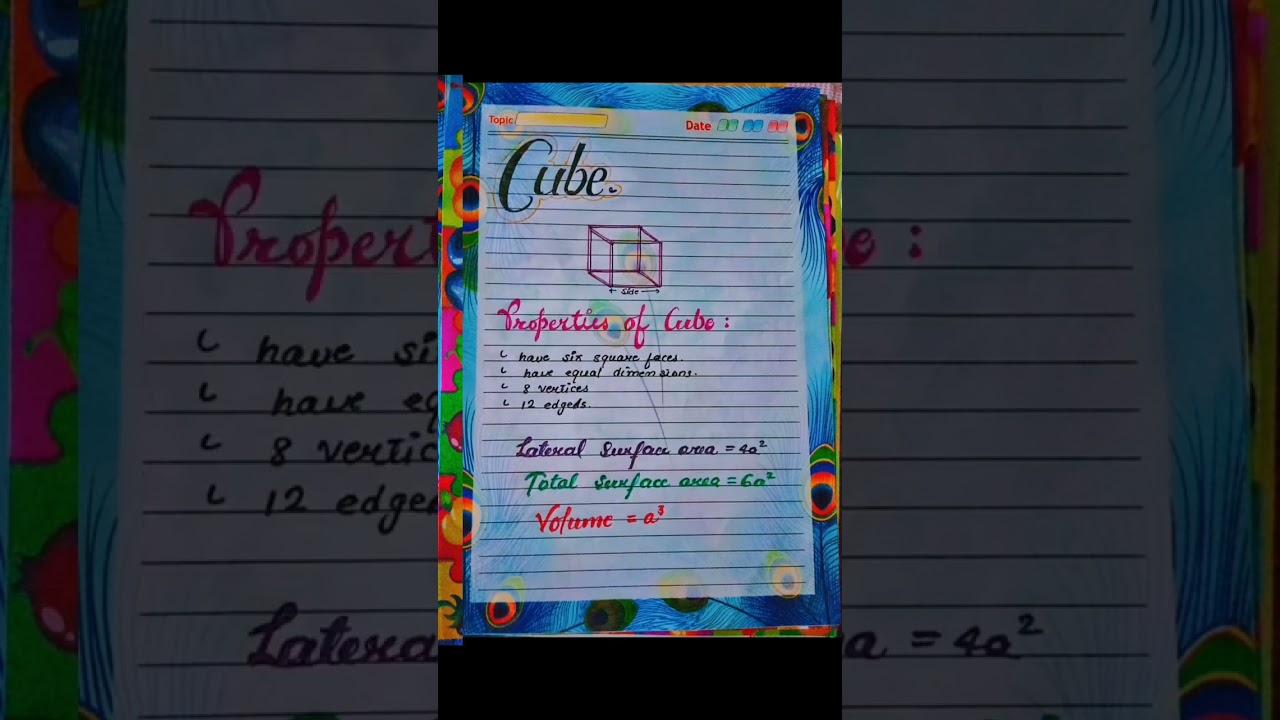 Topic
Date
Cube.
side
Properties of Cube :
have six square faces.
have equal dimensions.
8 vertices
12 edges.
Lateral Surface area = 4a²
Total surface area = 6a²
Volume = a³